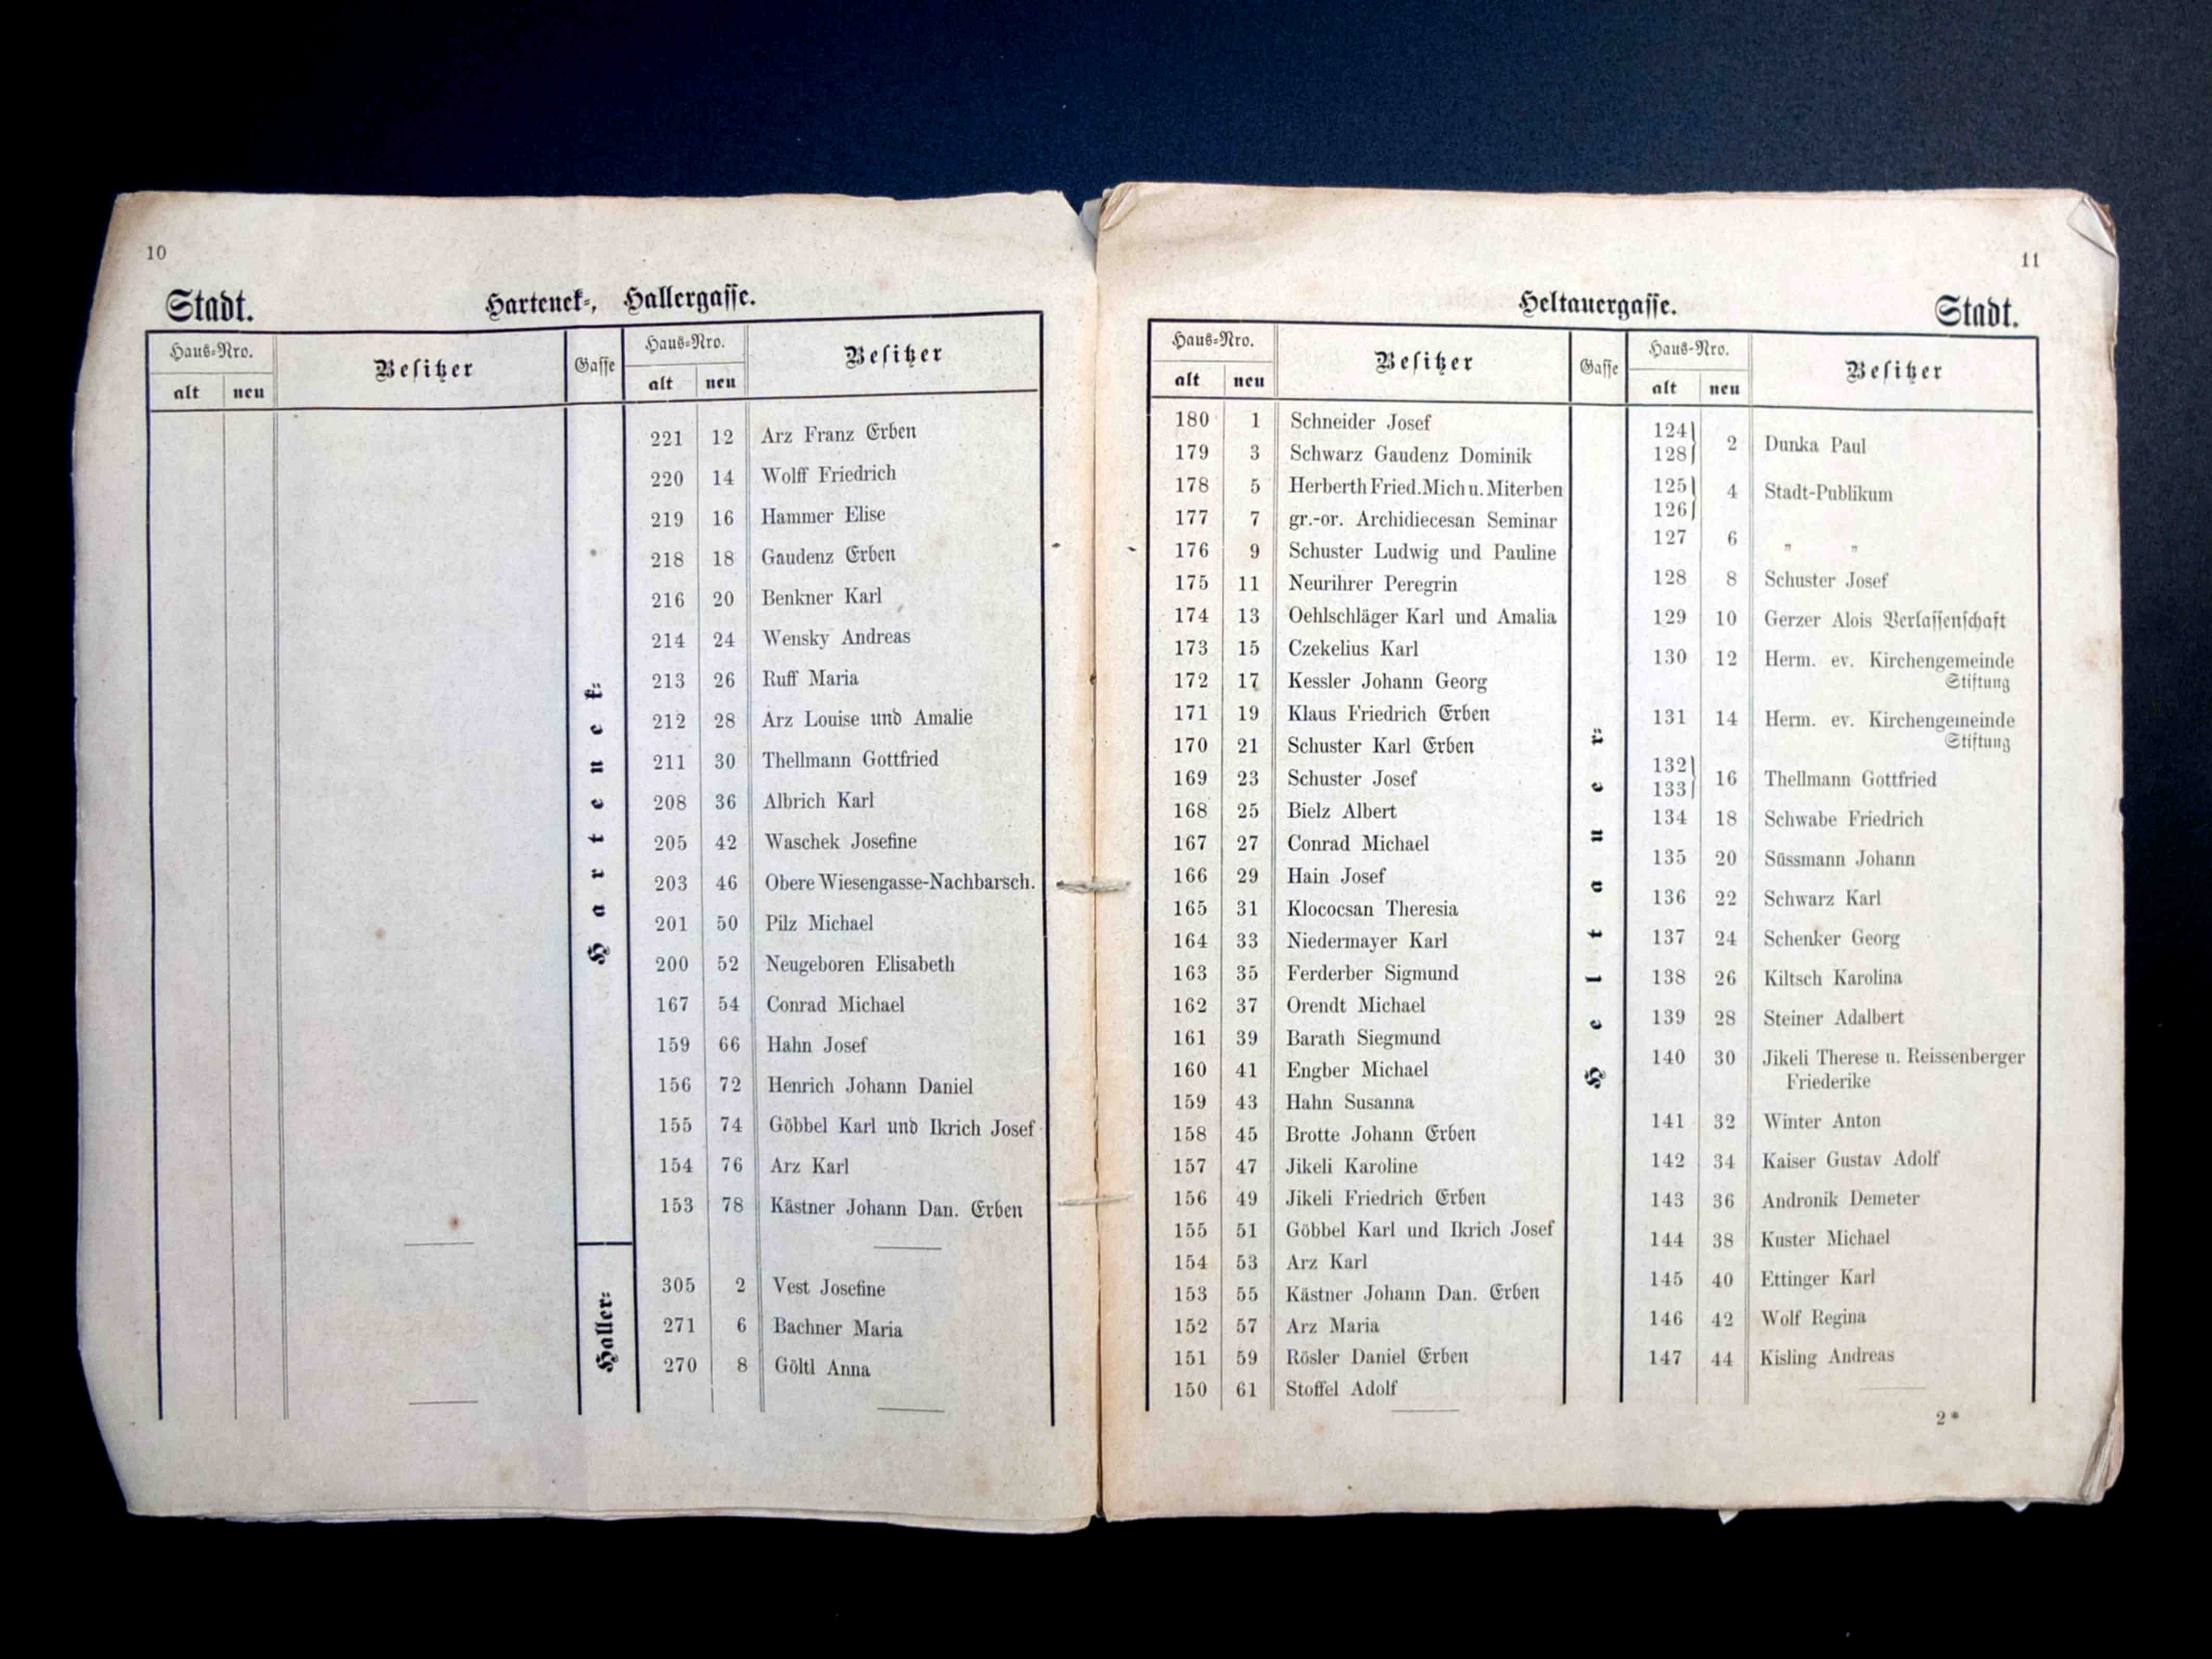 10
Stadt.
Hartenek-, Hallergasse.
Haus-Nro.
Besitzer
Gasse
Haus-Nro.
Besitzer
alt neu
alt neu
Hartenek-
221 12 Arz Franz Erben
220 14 Wolff Friedrich
219 16 Hammer Elise
218 18 Gaudenz Erben
216 20 Benkner Karl
214 24 Wensky Andreas
213 26 Ruff Maria
212 28 Arz Louise und Amalie
211 30 Thellmann Gottfried
208 36 Albrich Karl
205 42 Waschek Josefine
203 46 Obere Wiesengasse-Nachbarsch.
201 50 Pilz Michael
200 52 Neugeboren Elisabeth
167 54 Conrad Michael
159 66 Hahn Josef
156 72 Henrich Johann Daniel
155 74 Göbbel Karl und Ikrich Josef
154 76 Arz Karl
153 78 Kästner Johann Dan. Erben
Haller-
305 2 Vest Josefine
271 6 Bachner Maria
270 8 Göltl Anna
11
Heltauergasse.
Stadt.
Haus-Nro.
Besitzer
Gasse
Haus-Nro.
Besitzer
alt neu
alt neu
180 1 Schneider Josef
179 3 Schwarz Gaudenz Dominik
178 5 Herberth Fried. Mich u. Miterben
177 7 gr.-or. Archidiecesan Seminar
176 9 Schuster Ludwig und Pauline
175 11 Neurihrer Peregrin
174 13 Oehlschläger Karl und Amalia
173 15 Czekelius Karl
172 17 Kessler Johann Georg
171 19 Klaus Friedrich Erben
170 21 Schuster Karl Erben
169 23 Schuster Josef
168 25 Bielz Albert
167 27 Conrad Michael
166 29 Hain Josef
165 31 Klococsan Theresia
164 33 Niedermayer Karl
163 35 Ferderber Sigmund
162 37 Orendt Michael
161 39 Barath Siegmund
160 41 Engber Michael
159 43 Hahn Susanna
158 45 Brotte Johann Erben
157 47 Jikeli Karoline
156 49 Jikeli Friedrich Erben
155 51 Göbbel Karl und Ikrich Josef
154 53 Arz Karl
153 55 Kästner Johann Dan. Erben
152 57 Arz Maria
151 59 Rösler Daniel Erben
150 61 Stoffel Adolf
Heltauer-
124}
128} 2 Dunka Paul
125}
126} 4 Stadt-Publikum
127 6 " "
128 8 Schuster Josef
129 10 Gerzer Alois Verlassenschaft
130 12 Herm. ev. Kirchengemeinde
Stiftung
131 14 Herm. ev. Kirchengemeinde
Stiftung
132}
133} 16 Thellmann Gottfried
134 18 Schwabe Friedrich
135 20 Süssmann Johann
136 22 Schwarz Karl
137 24 Schenker Georg
138 26 Kiltsch Karolina
139 28 Steiner Adalbert
140 30 Jikeli Therese u. Reissenberger
Friederike
141 32 Winter Anton
142 34 Kaiser Gustav Adolf
143 36 Andronik Demeter
144 38 Kuster Michael
145 40 Ettinger Karl
146 42 Wolf Regina
147 44 Kisling Andreas
2*